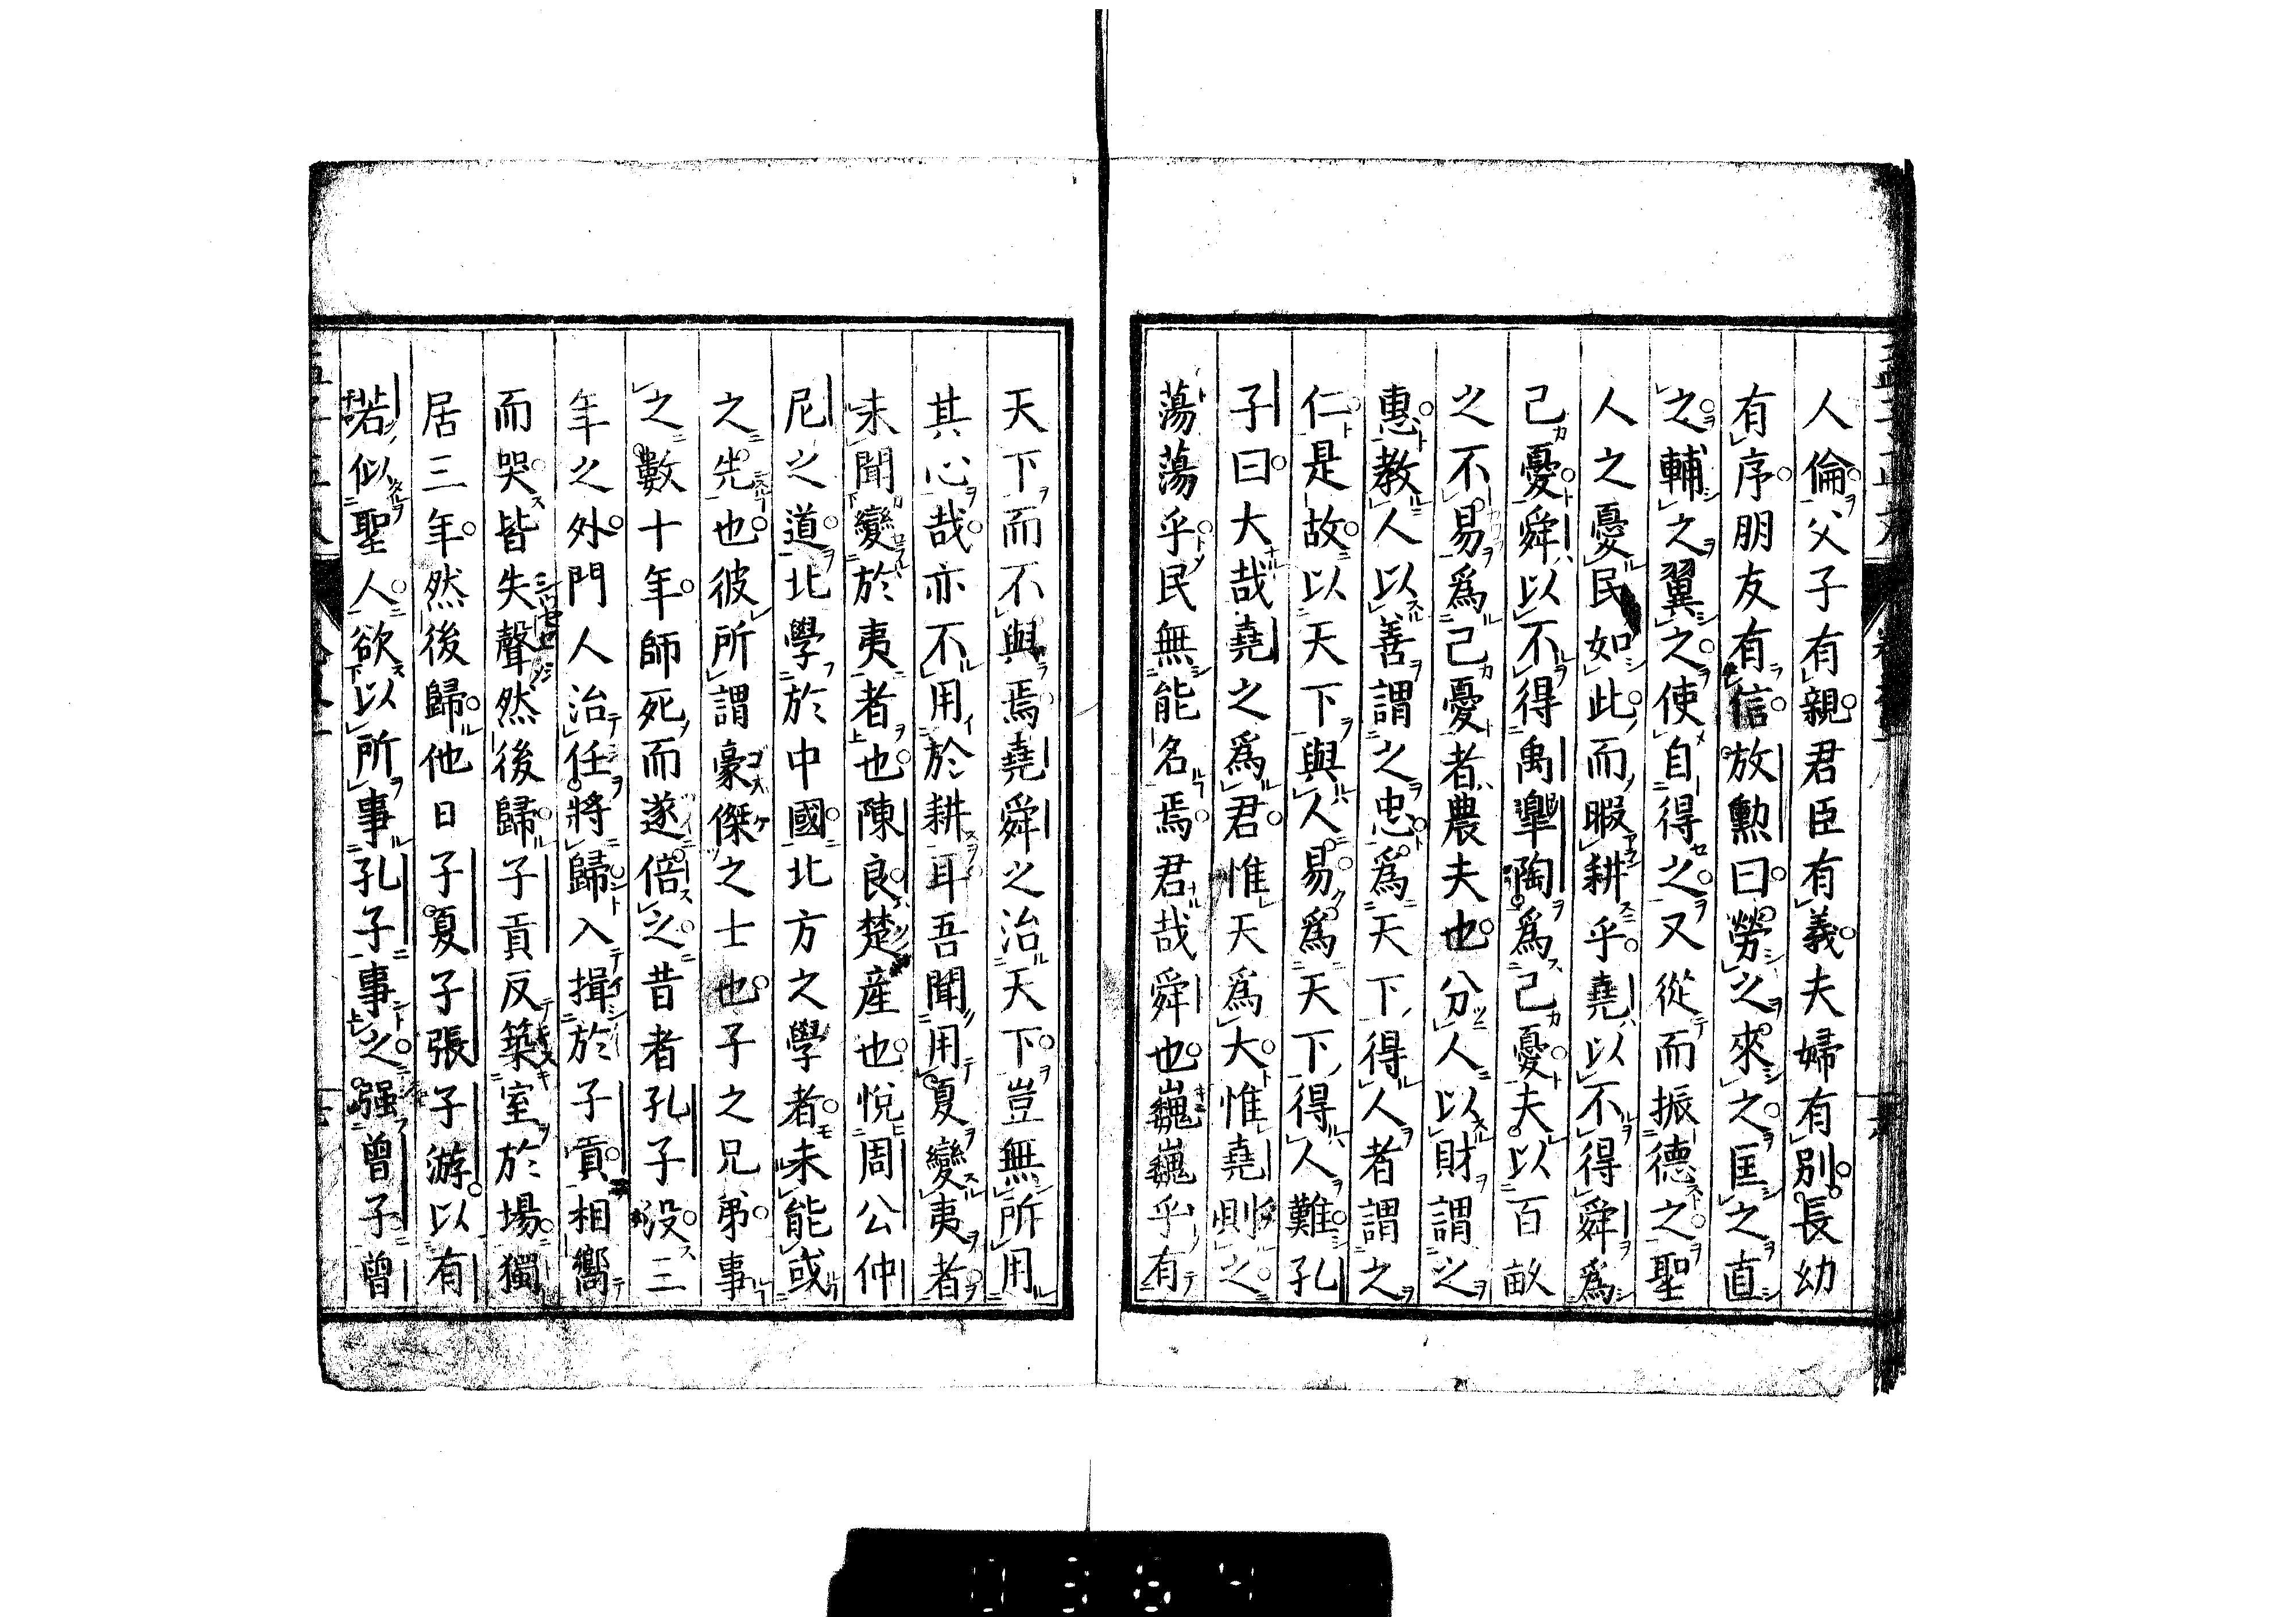 人倫父子有親君臣有義夫婦有別長幼
有序朋友有信放勲曰勞之來之匡之直
之輔之翼之使自得之又從而振德之聖
人之憂民如此而暇耕乎堯以不得舜爲
己憂舜以不得禹皐陶爲己憂夫以百畝
之不易爲己憂者農夫也分人以財謂之
惠教人以善謂之忠爲天下得人者謂之
仁是故以天下與人易爲天下得人難孔
子曰大哉堯之爲君惟天爲大惟堯則之
蕩蕩乎民無能名焉君哉舜也巍巍乎有
天下而不與焉堯舜之治天下豈無所用
其心哉亦不用於耕耳吾聞用夏變夷者
未聞變於夷者也陳良楚産也悅周公仲
尼之道北學於中國北方之學者未能或
之先也彼所謂豪傑之士也子之兄弟事
之數十年師死而遂倍之昔者孔子没三
年之外門人治任將歸入揖於子貢相嚮
而哭皆失聲然後歸子貢反築室於場獨
居三年然後歸他日子夏子張子游以有
若似聖人欲以所事孔子事之强曾子曾
0364